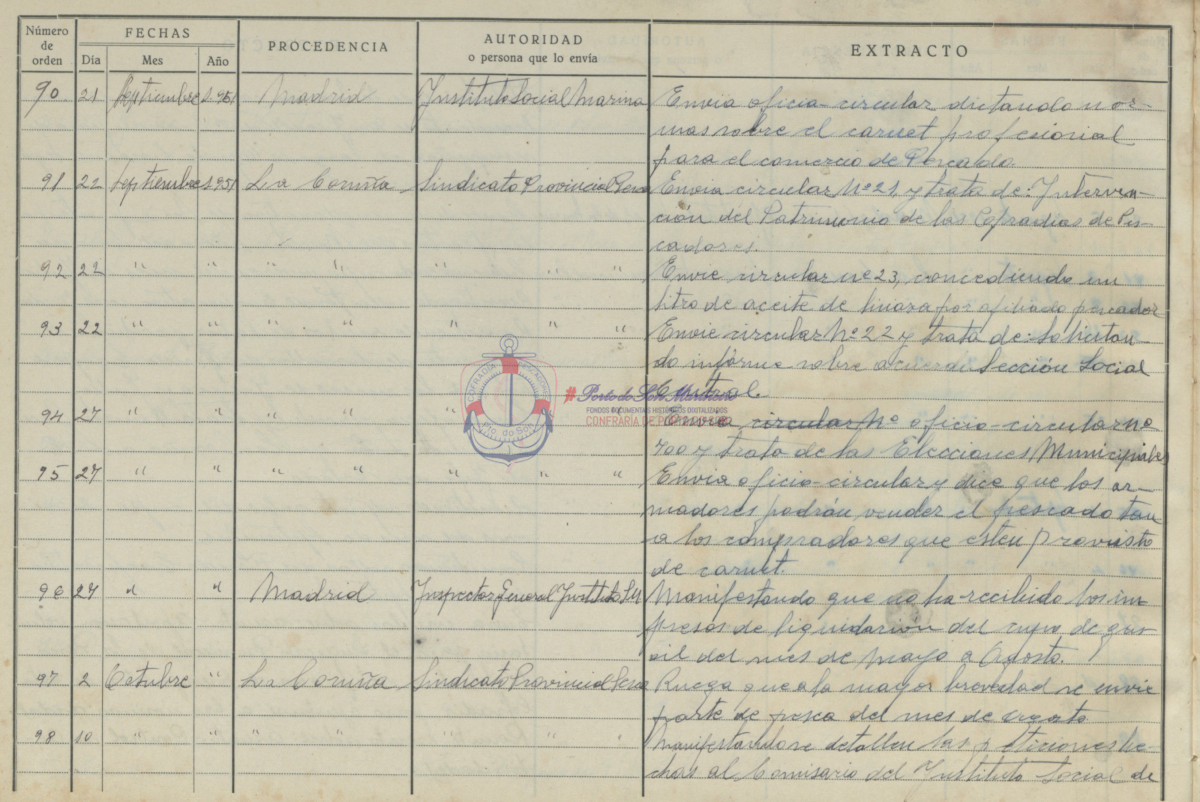 Número de orden FECHAS PROCEDENCIA AUTORIDAD o persona que lo envía EXTRACTO
Día Mes Año
90 21 Septiembre 1951 Madrid Instituto Social Marina Envia oficio-circular dictando nor-
mas sobre el carnet profesional
para el comercio de Pescado.
91 22 Septiembre 1951 La Coruña Sindicato Provincial Pesca Envia circular Nº 21, y trata de: Interven-
ción del Patrimonio de las Cofradias de Pes-
cadores.
92 22 " " " " " " Envie circular nº 23, concediendo un
litro de aceite de linaza por afiliado pescador
93 22 " " " " " " Envie circular Nº 22 y trata de: solicitan-
do informe sobre Sección Social
Central.
94 27 " " " " " Envia circular Nº oficio-circular nº
700 y trata de las Elecciones Municipales
95 27 " " " " " " " Envia oficio-circular y dice que los ar-
madores podrán vender el pescado
a los compradores que esten provisto
de carnet.
96 27 " " Madrid Inspector General Instituto Manifestando que no ha recibido los im-
presos de liquidacion del cupo de gas-
oil del mes de Mayo a Agosto.
97 2 Octubre " La Coruña Sindicato Provincial Pesca Ruega que a la mayor brevedad se envie
parte de pesca del mes de agosto
98 10 " " " " " " Manifestandose detallen las peticiones he-
chas al Comisario del Instituto Social de
COFRADÍA PESCADORES
Pto. do Son
# Porto do Son Mariñeiro
FONDOS DOCUMENTAIS HISTÓRICOS DIGITALIZADOS